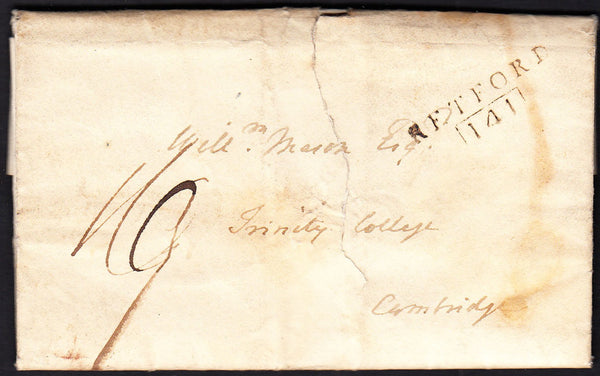 RETFORD
141
Willm. Mason Esqr.
Trinity College
Cambridge